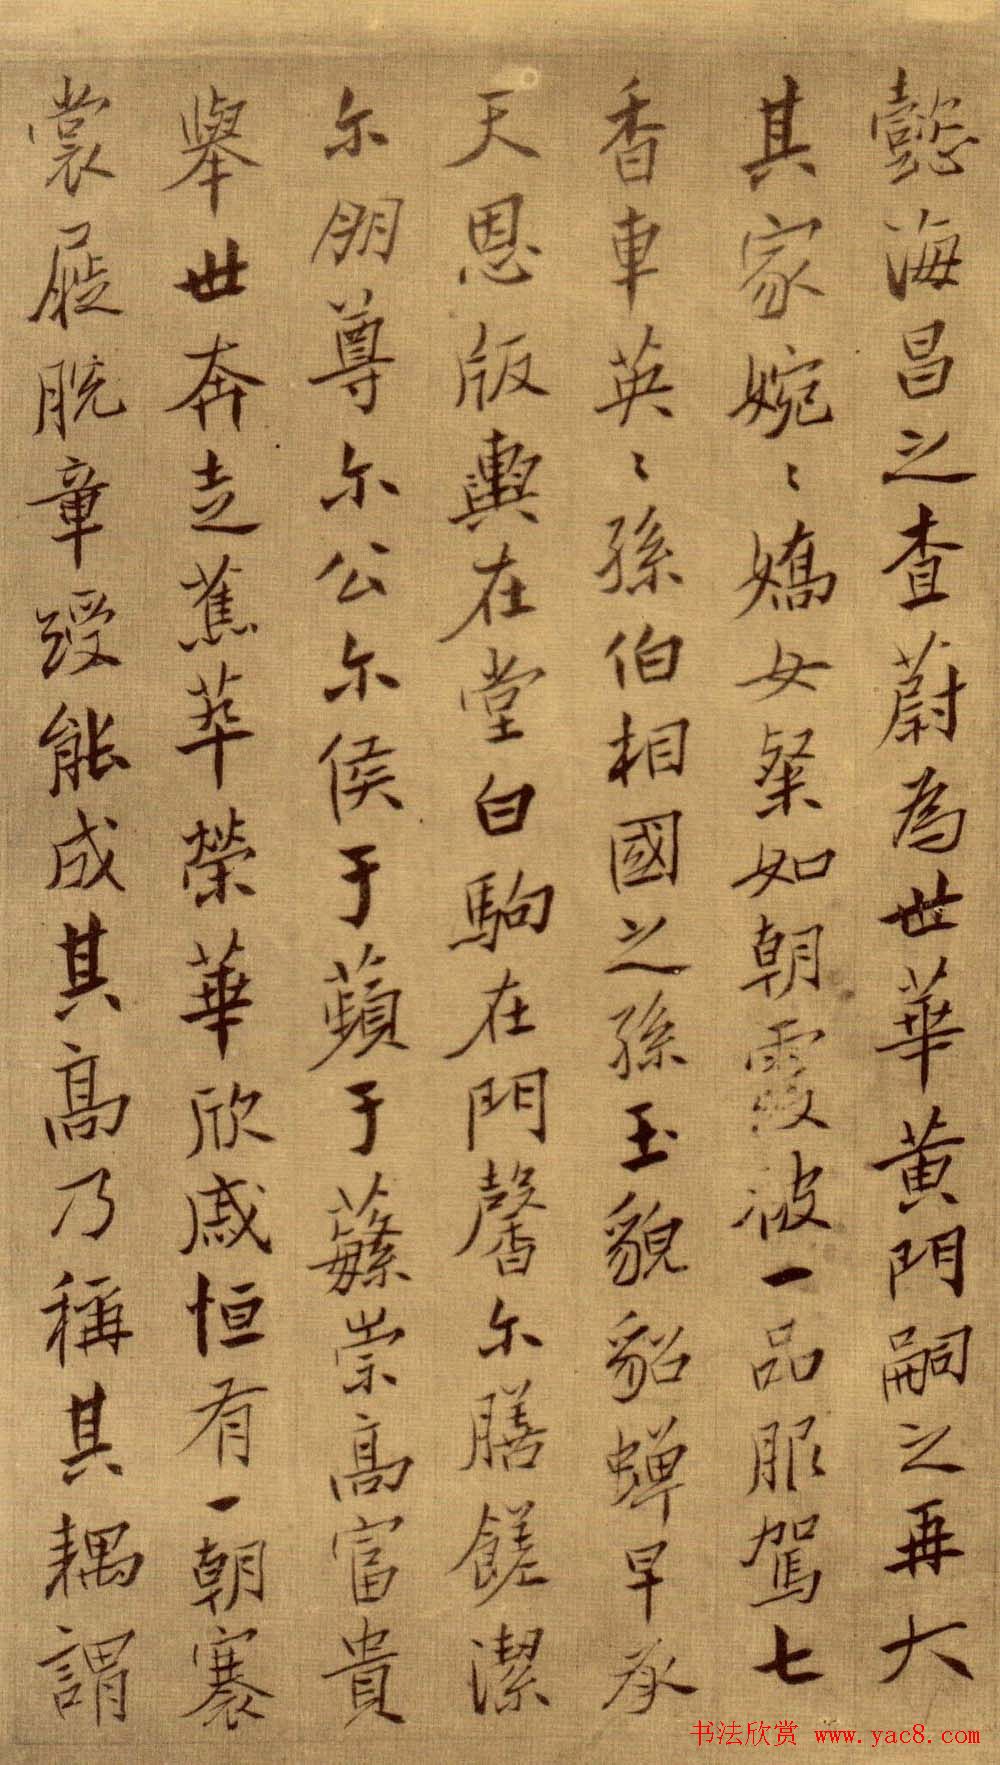 懿海昌之查蔚為世華黃門嗣之再大
其家婉〻嬌女粲如朝霞被一品服駕七
香車英〻孫伯相國之孫玉貌貂蟬早承
天恩版輿在堂白駒在門馨尔膳饈潔
尔朋尊尔公尔侯于蘋于蘩崇高富貴
舉世奔走蕉萃榮華欣戚恒有一朝褰
裳屣脫章綬能成其高乃稱其耦謂
书法欣赏 www.yac8.com